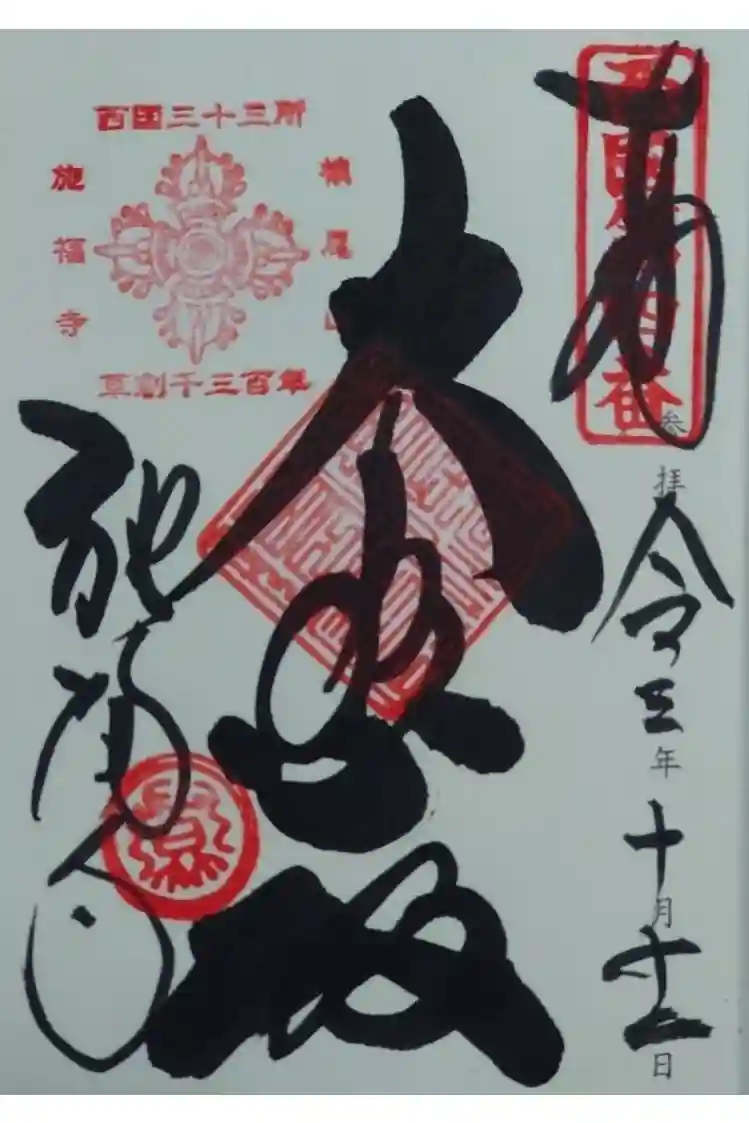 西国第四番
奉
参拝
令三年十月十二日
大悲殿
西国三十三所
槇尾山
施福寺
草創千三百年
施福寺